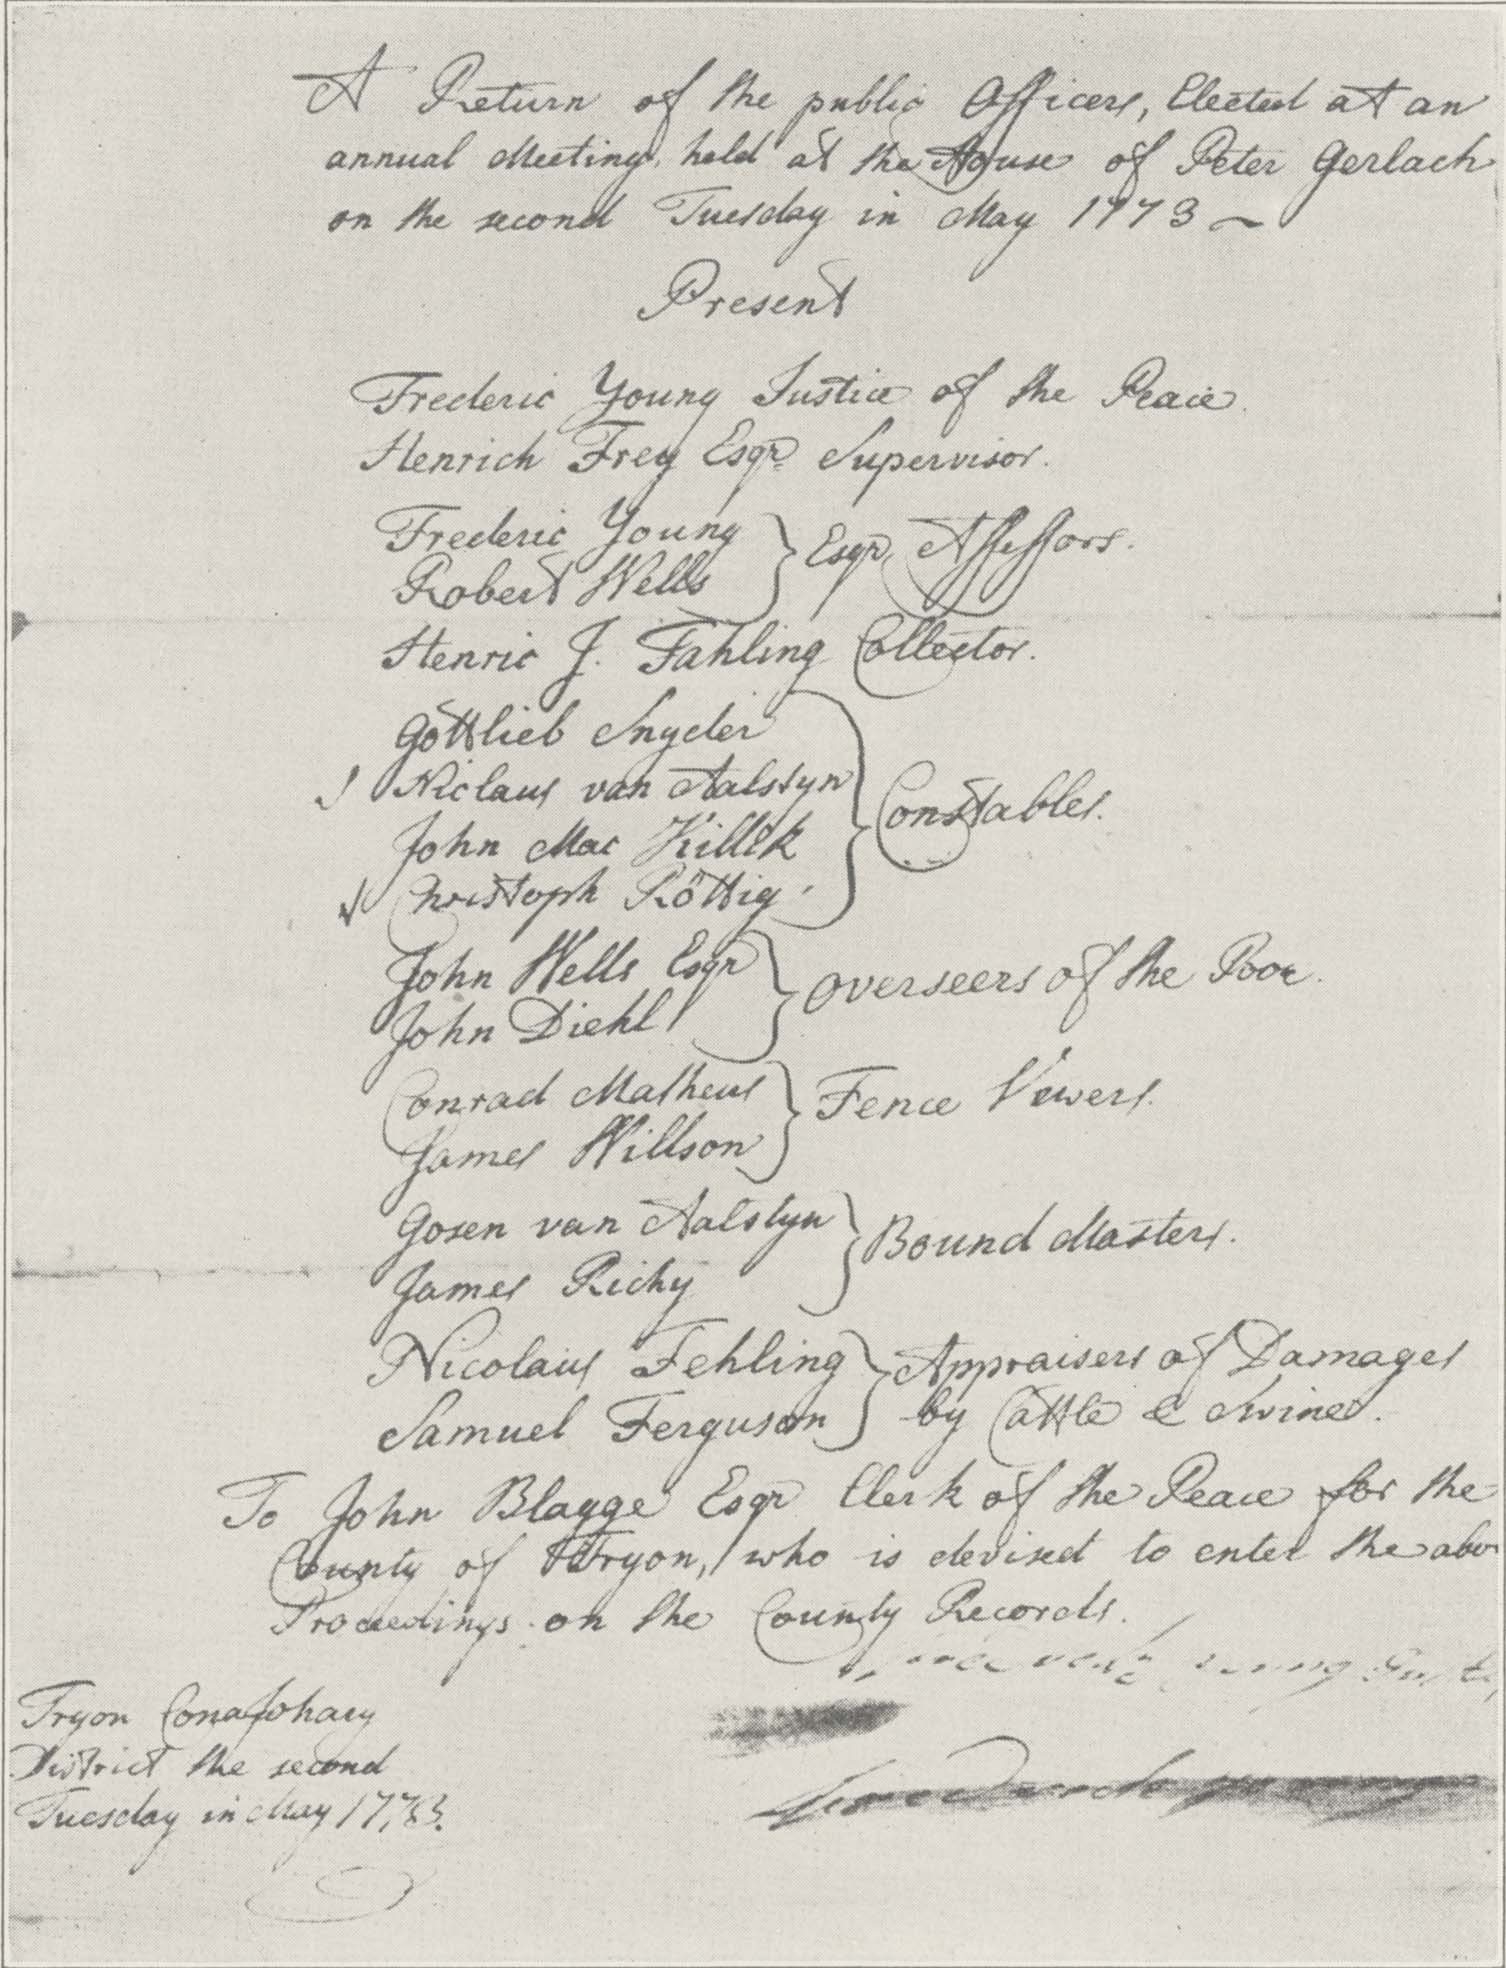 A Return of the public Officers, Elected at an
annual Meeting, held at the House of Peter Gerlach
on the second Tuesday in May 1773 ~
Present
Frederic Young Justice of the Peace.
Henrich Frey Esqr. Supervisor.
Frederic Young
Robert Wells } Esqr. Assessors.
Henric J. Fahling Collector.
Gottlieb Snyder
Niclaus van Aalstyn
John Mac Killik
Christoph Röttig } Constables.
John Wells Esqr
John Diehl } Overseers of the Poor.
Conrad Matheus
James Willson } Fence Vewers.
Gosen van Aalstyn
James Richy } Bound Masters.
Nicolaus Fehling
Samuel Ferguson } Appraisers of Damages
by Cattle & Swine.
To John Blagge Esqr Clerk of the Peace for the
County of Tryon, who is devised to enter the abov
Proceedings on the County Records.
Tryon Conajohary
District the second
Tuesday in May 1773.